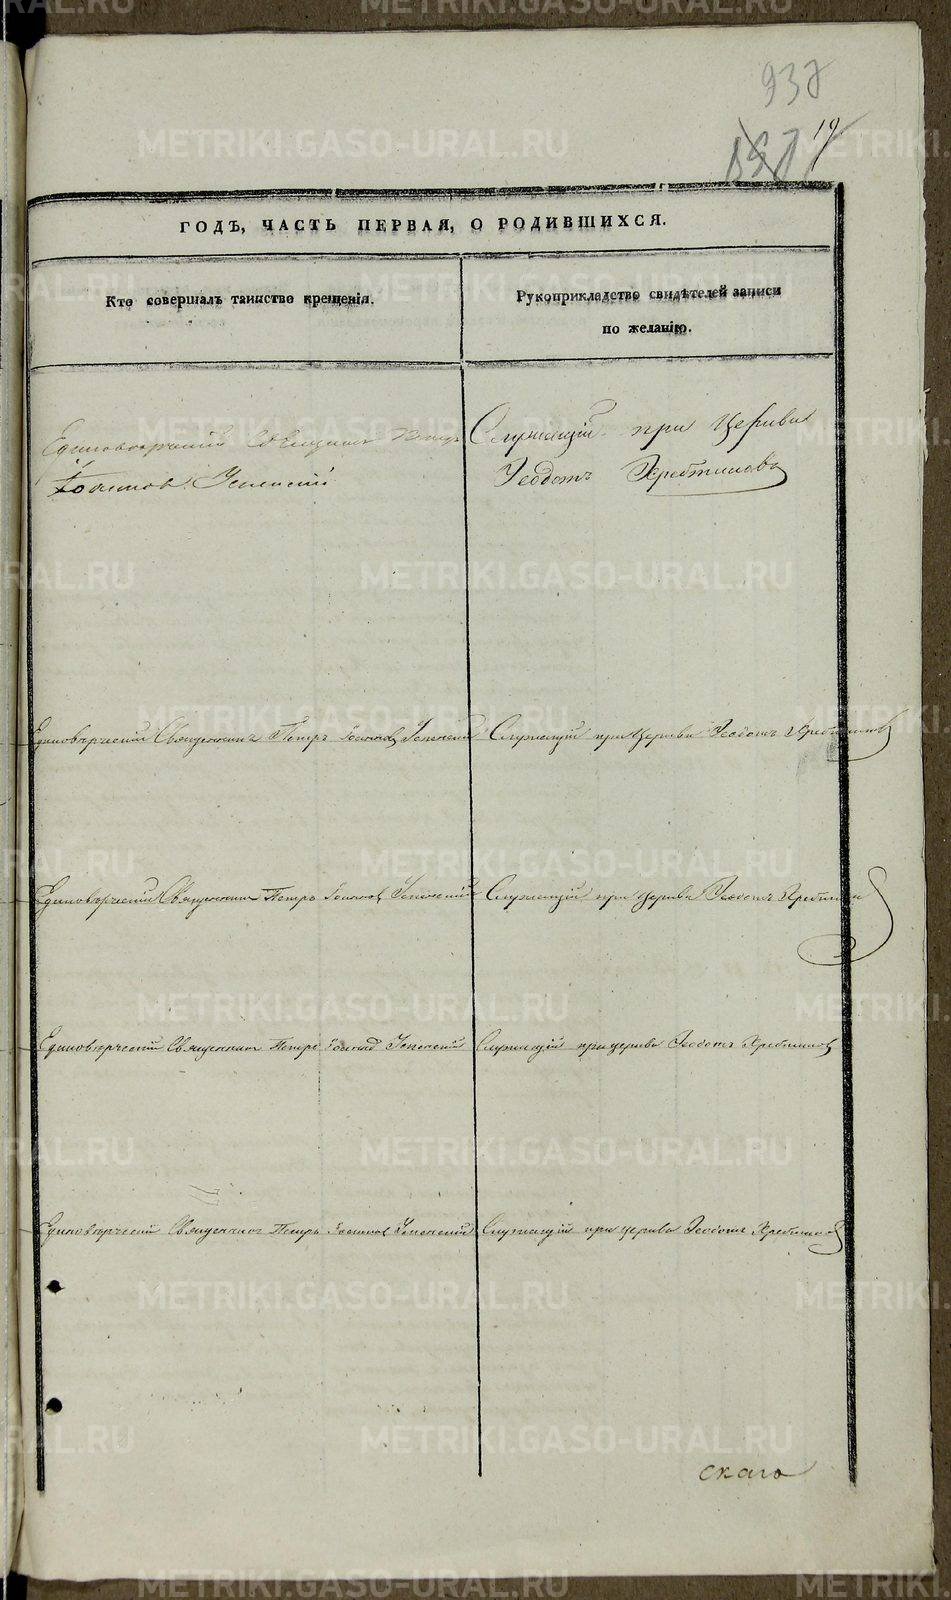 937
19
ГОДЪ, ЧАСТЬ ПЕРВАЯ, О РОДИВШИХСЯ.
Кто совершалъ таинство крещенія.
Рукоприкладство свидѣтелей записи
по желанію.
Единовѣрческій Священникъ Петръ
Іоанновъ Успенскій
Служащій при Церкви
Ѳеодотъ Хребтиковъ
Единовѣрческій Священникъ Петръ Іоанновъ Успенскій
Служащій при Церкви Ѳеодотъ Хребтиковъ
Единовѣрческій Священникъ Петръ Іоанновъ Успенскій
Служащій при Церкви Ѳеодотъ Хребтиковъ
Единовѣрческій Священникъ Петръ Іоанновъ Успенскій
Служащій при церкви Ѳеодотъ Хребтиковъ
Единовѣрческій Священникъ Петръ Іоанновъ Успенскій
Служащій при церкви Ѳеодотъ Хребтиковъ
скаго
METRIKI.GASO-URAL.RU